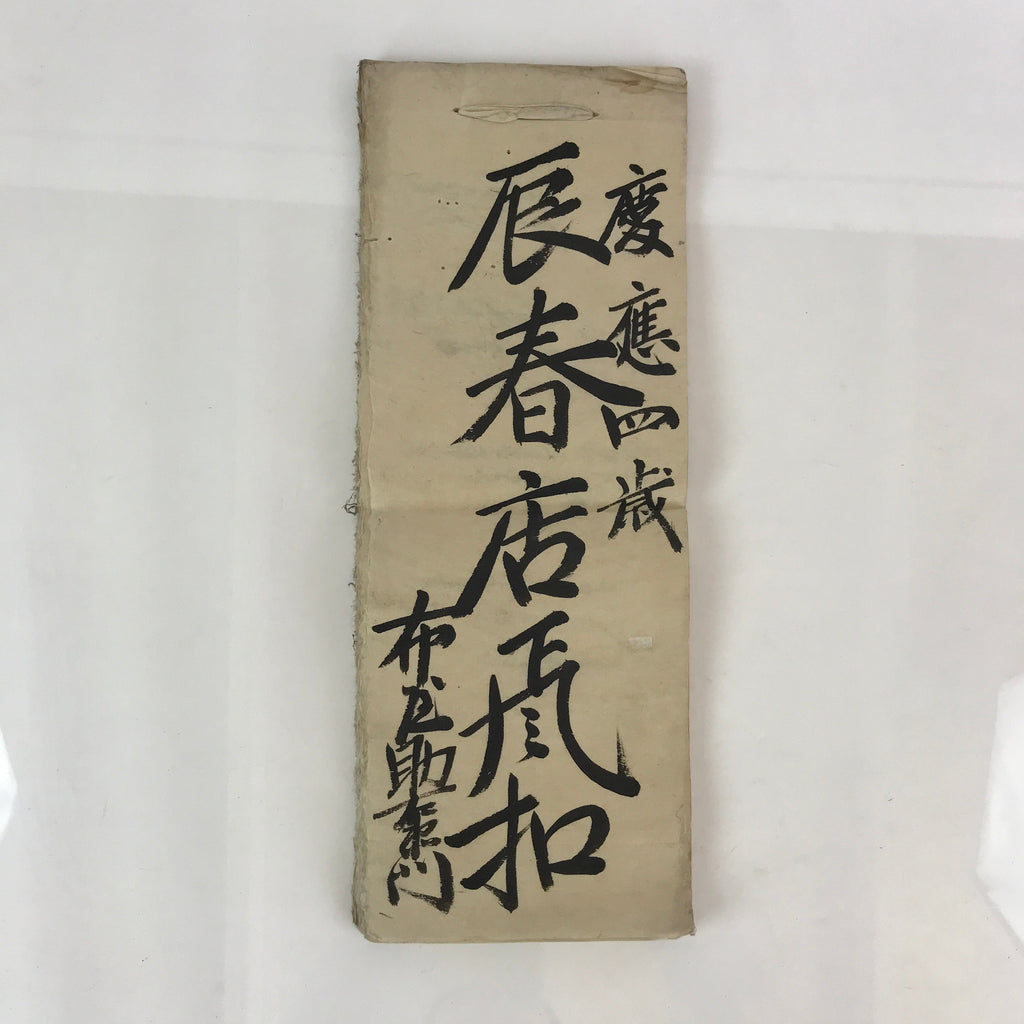 慶應四歳
辰春店卸扣
布屋助左衛門